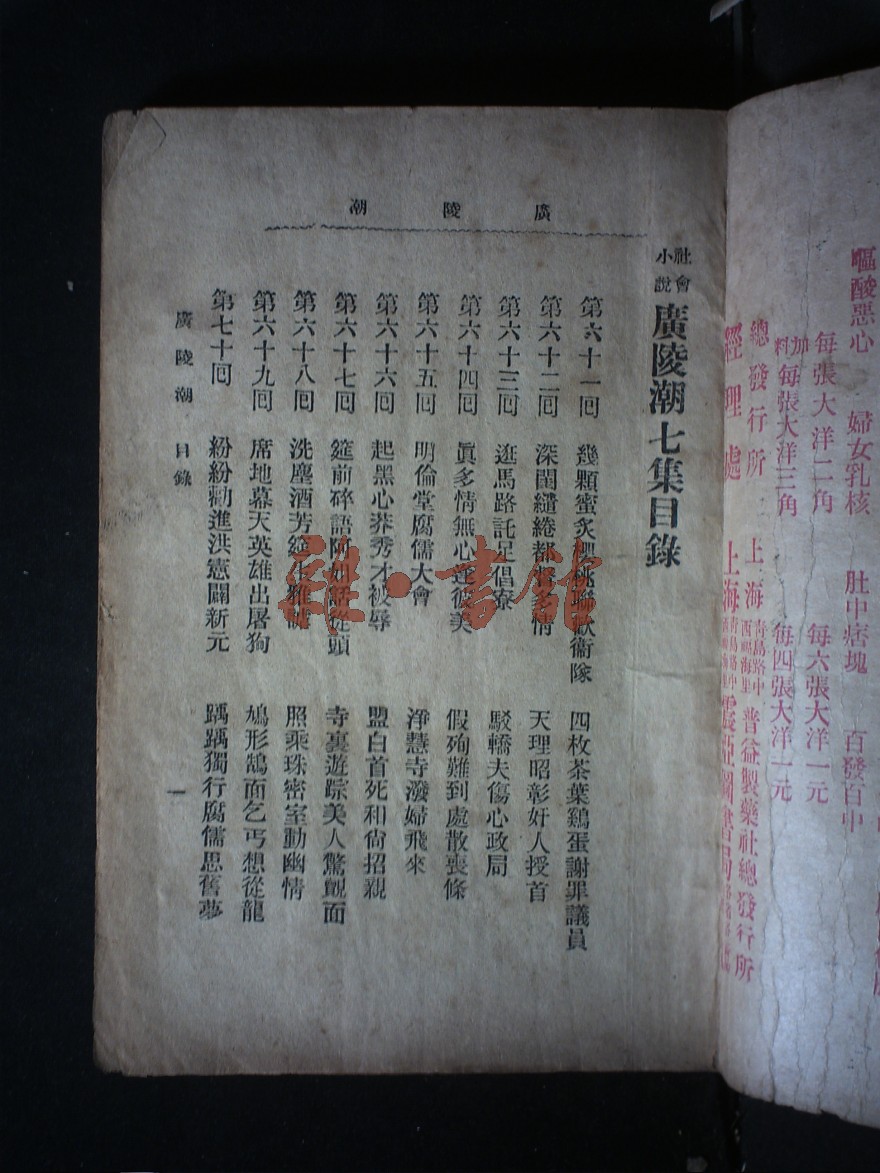 嘔酸惡心　婦女乳核　肚中痞塊　百發百中
每張大洋二角　每六張大洋一元
加料每張大洋三角　每四張大洋一元
總發行所　上海青島路中西福海里普益製藥社總發行所
經理處　上海
廣陵潮
社會小說廣陵潮七集目錄
第六十一回　幾顆蜜炙櫻桃聯歡衞隊　四枚茶葉鷄蛋謝罪議員
第六十二回　深閨繾綣都督多情　天理昭彰奸人授首
第六十三回　逛馬路託足倡寮　駁轎夫傷心政局
第六十四回　眞多情無心逢彼美　假殉難到處散喪條
第六十五回　明倫堂腐儒大會　淨慧寺潑婦飛來
第六十六回　起黑心莽秀才被辱　盟白首死和尙招親
第六十七回　筵前碎語阿姐話從頭　寺裏遊踪美人驚覿面
第六十八回　洗塵酒芳筵生雅謔　照乘珠密室動幽情
第六十九回　席地幕天英雄出屠狗　鳩形鵠面乞丐想從龍
第七十回　紛紛勸進洪憲闢新元　踽踽獨行腐儒思舊夢
廣陵潮　目錄　一
雜·書館